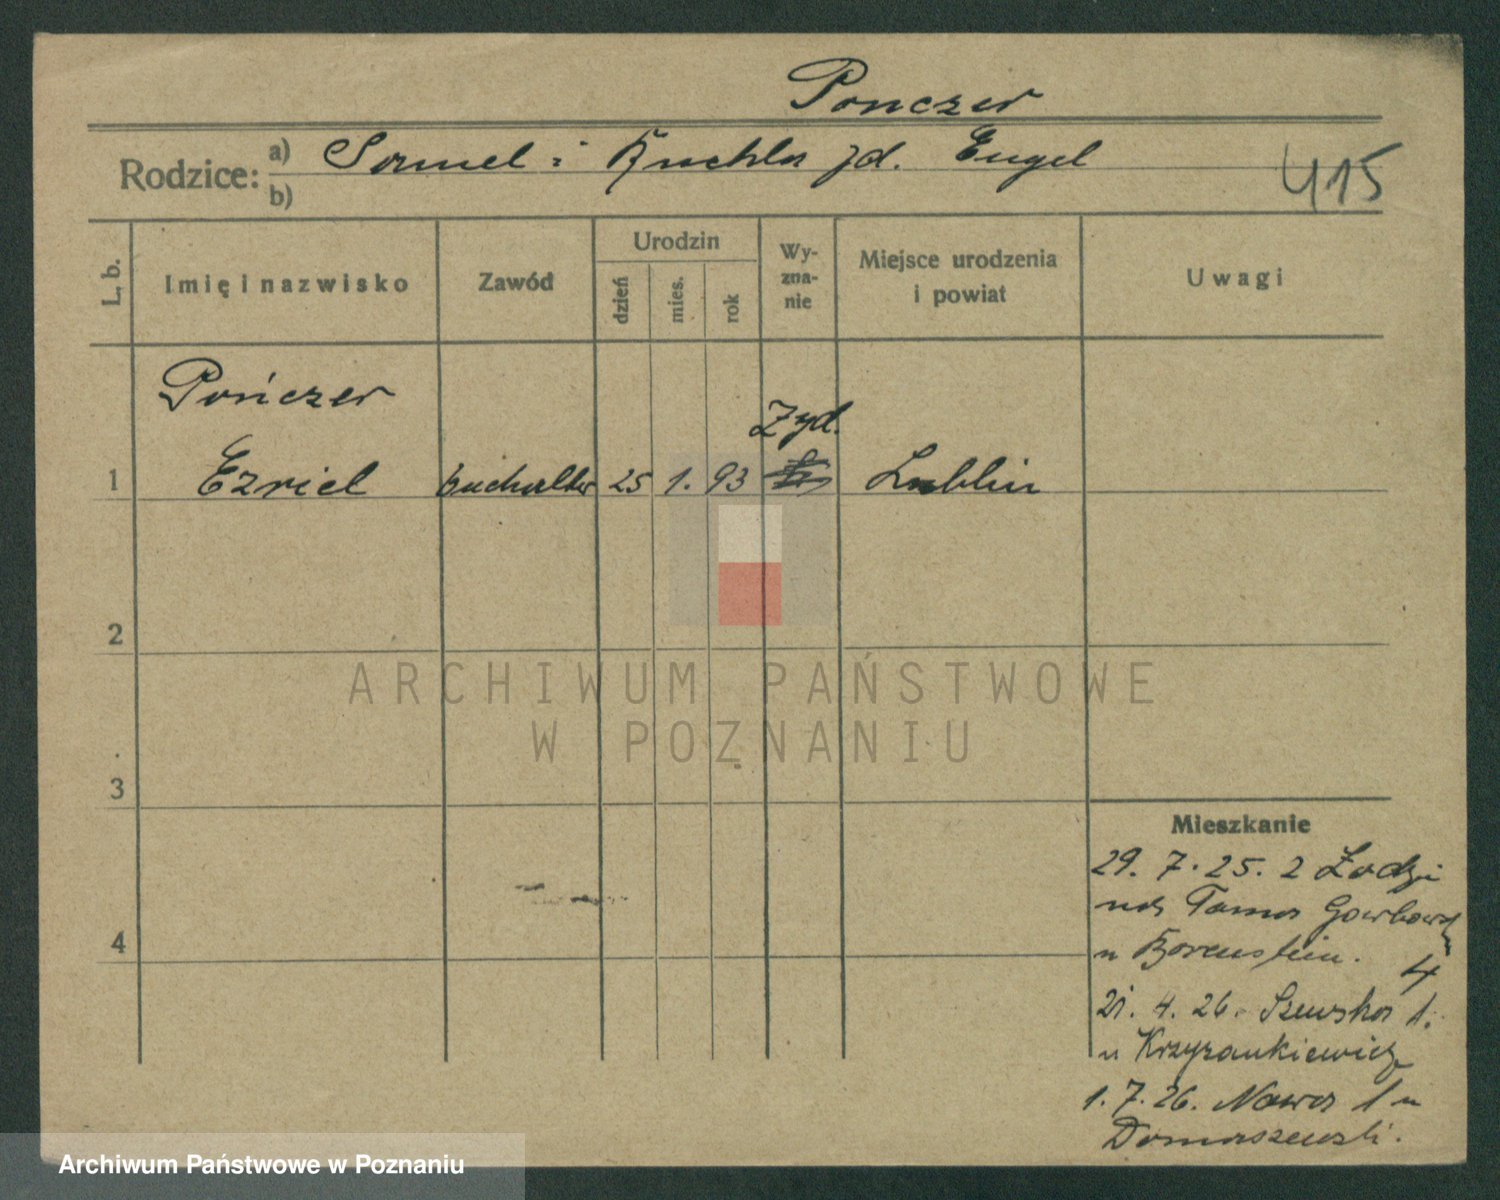 Ponczer
Rodzice: a) Samuel i Ruchla zd. Engel
b)
415
L. b.
Imię i nazwisko
Zawód
Urodzin
dzień
mies.
rok
Wy-
zna-
nie
Miejsce urodzenia
i powiat
Uwagi
Pończer
Żyd.
1 Ezriel buchalter 25 1. 93 Lublin
2
3
4
Mieszkanie
29. 7. 25. z Łodzi
na Tama Garbarska
u Borenstein. 4
21. 4. 26. Szewska 1.
u Krzyżankiewicz
1. 7. 26. Nowa 1 u
Domaszewski.
ARCHIWUM PAŃSTWOWE
W POZNANIU
Archiwum Państwowe w Poznaniu